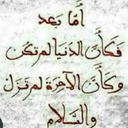 أما بعد
فكأن الدنيا لم تكن
وكأن الآخرة لم تزل
والسلام